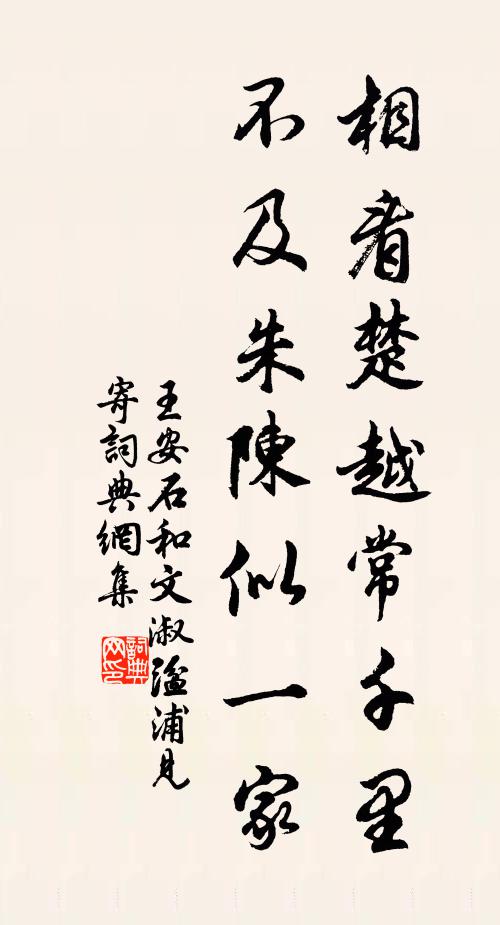 相看楚越常千里
不及朱陳似一家
王安石和文淑湓浦見
寄詞典網集
詞典
网印